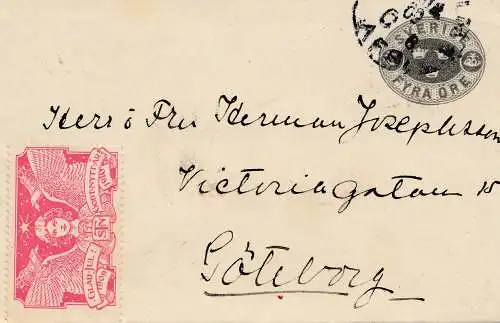 SVERIGE
FYRA ÖRE
Herr o Fru Herman Josephsson
Victoriagatan 15
Göteborg
GLAD JUL!